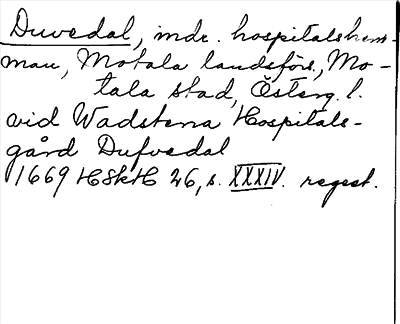 Duvedal, indr. hospitalshem-
man, Motala landsförs., Mo-
tala stad, Österg. l.
vid Wadstena Hospitals-
gård Dufvedal
1669 HSkH 26, s. XXXIV. regest.